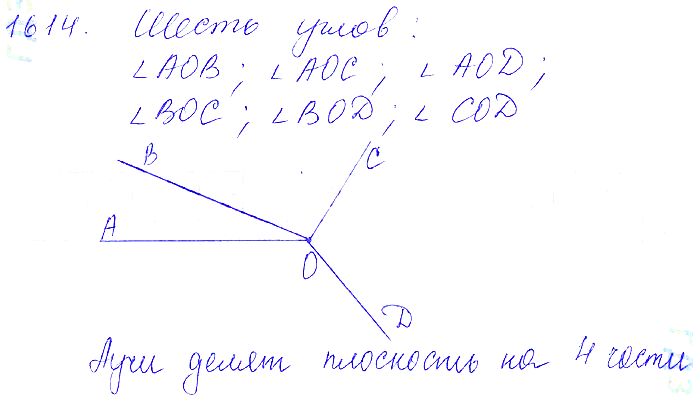 1614. Шесть углов:
∠AOB; ∠AOC; ∠AOD;
∠BOC; ∠BOD; ∠COD
B
C
A
O
D
Лучи делят плоскость на 4 части